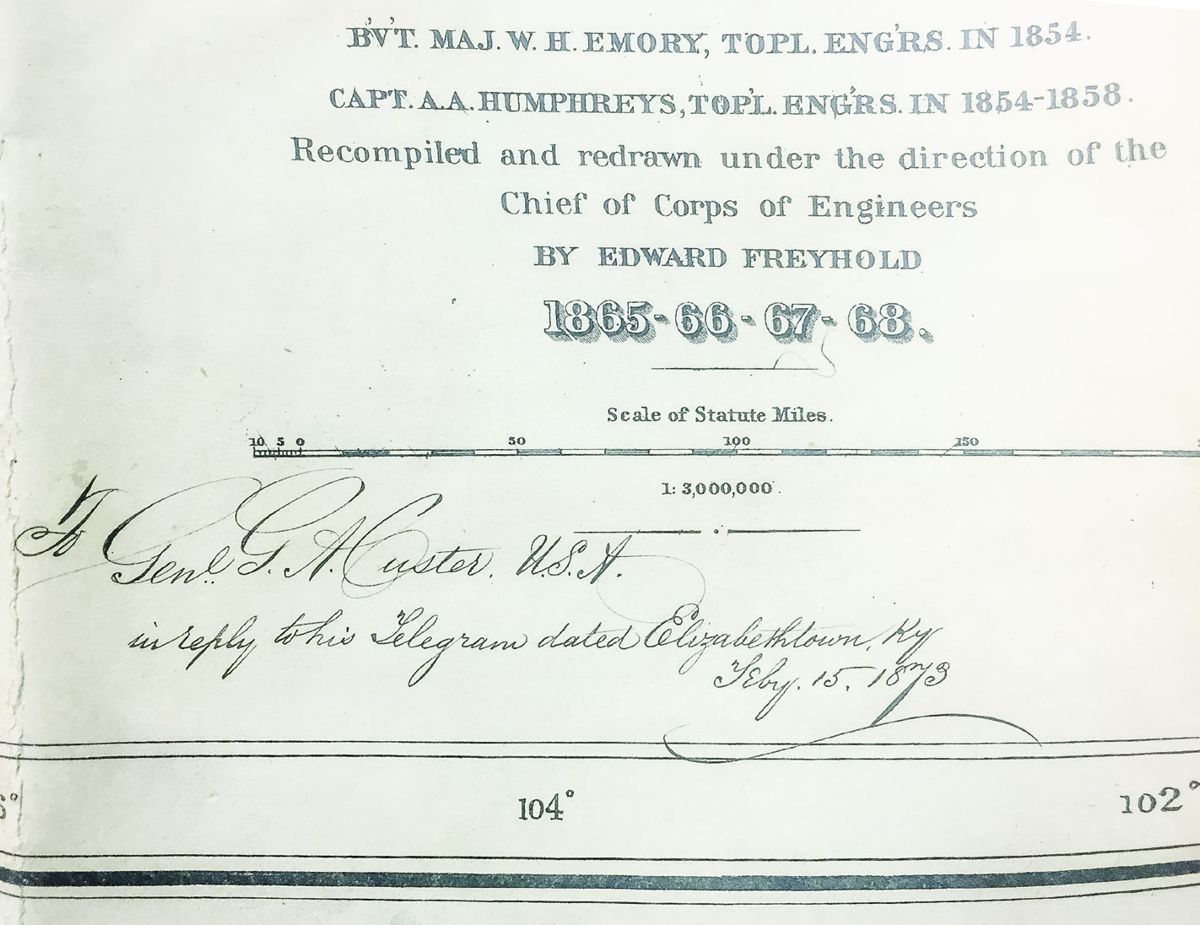 B'V'T. MAJ. W. H. EMORY, TOPL. ENG'RS. IN 1854.
CAPT. A. A. HUMPHREYS, TOP'L. ENG'RS. IN 1854-1858.
Recompiled and redrawn under the direction of the
Chief of Corps of Engineers
BY EDWARD FREYHOLD
1865-66-67-68.
Scale of Statute Miles.
10 5 0 50 100 150
1: 3,000,000.
To Genl. G. A. Custer. U.S.A.
in reply to his Telegram dated Elizabethtown, Ky
Feby. 15. 1873
104° 102°